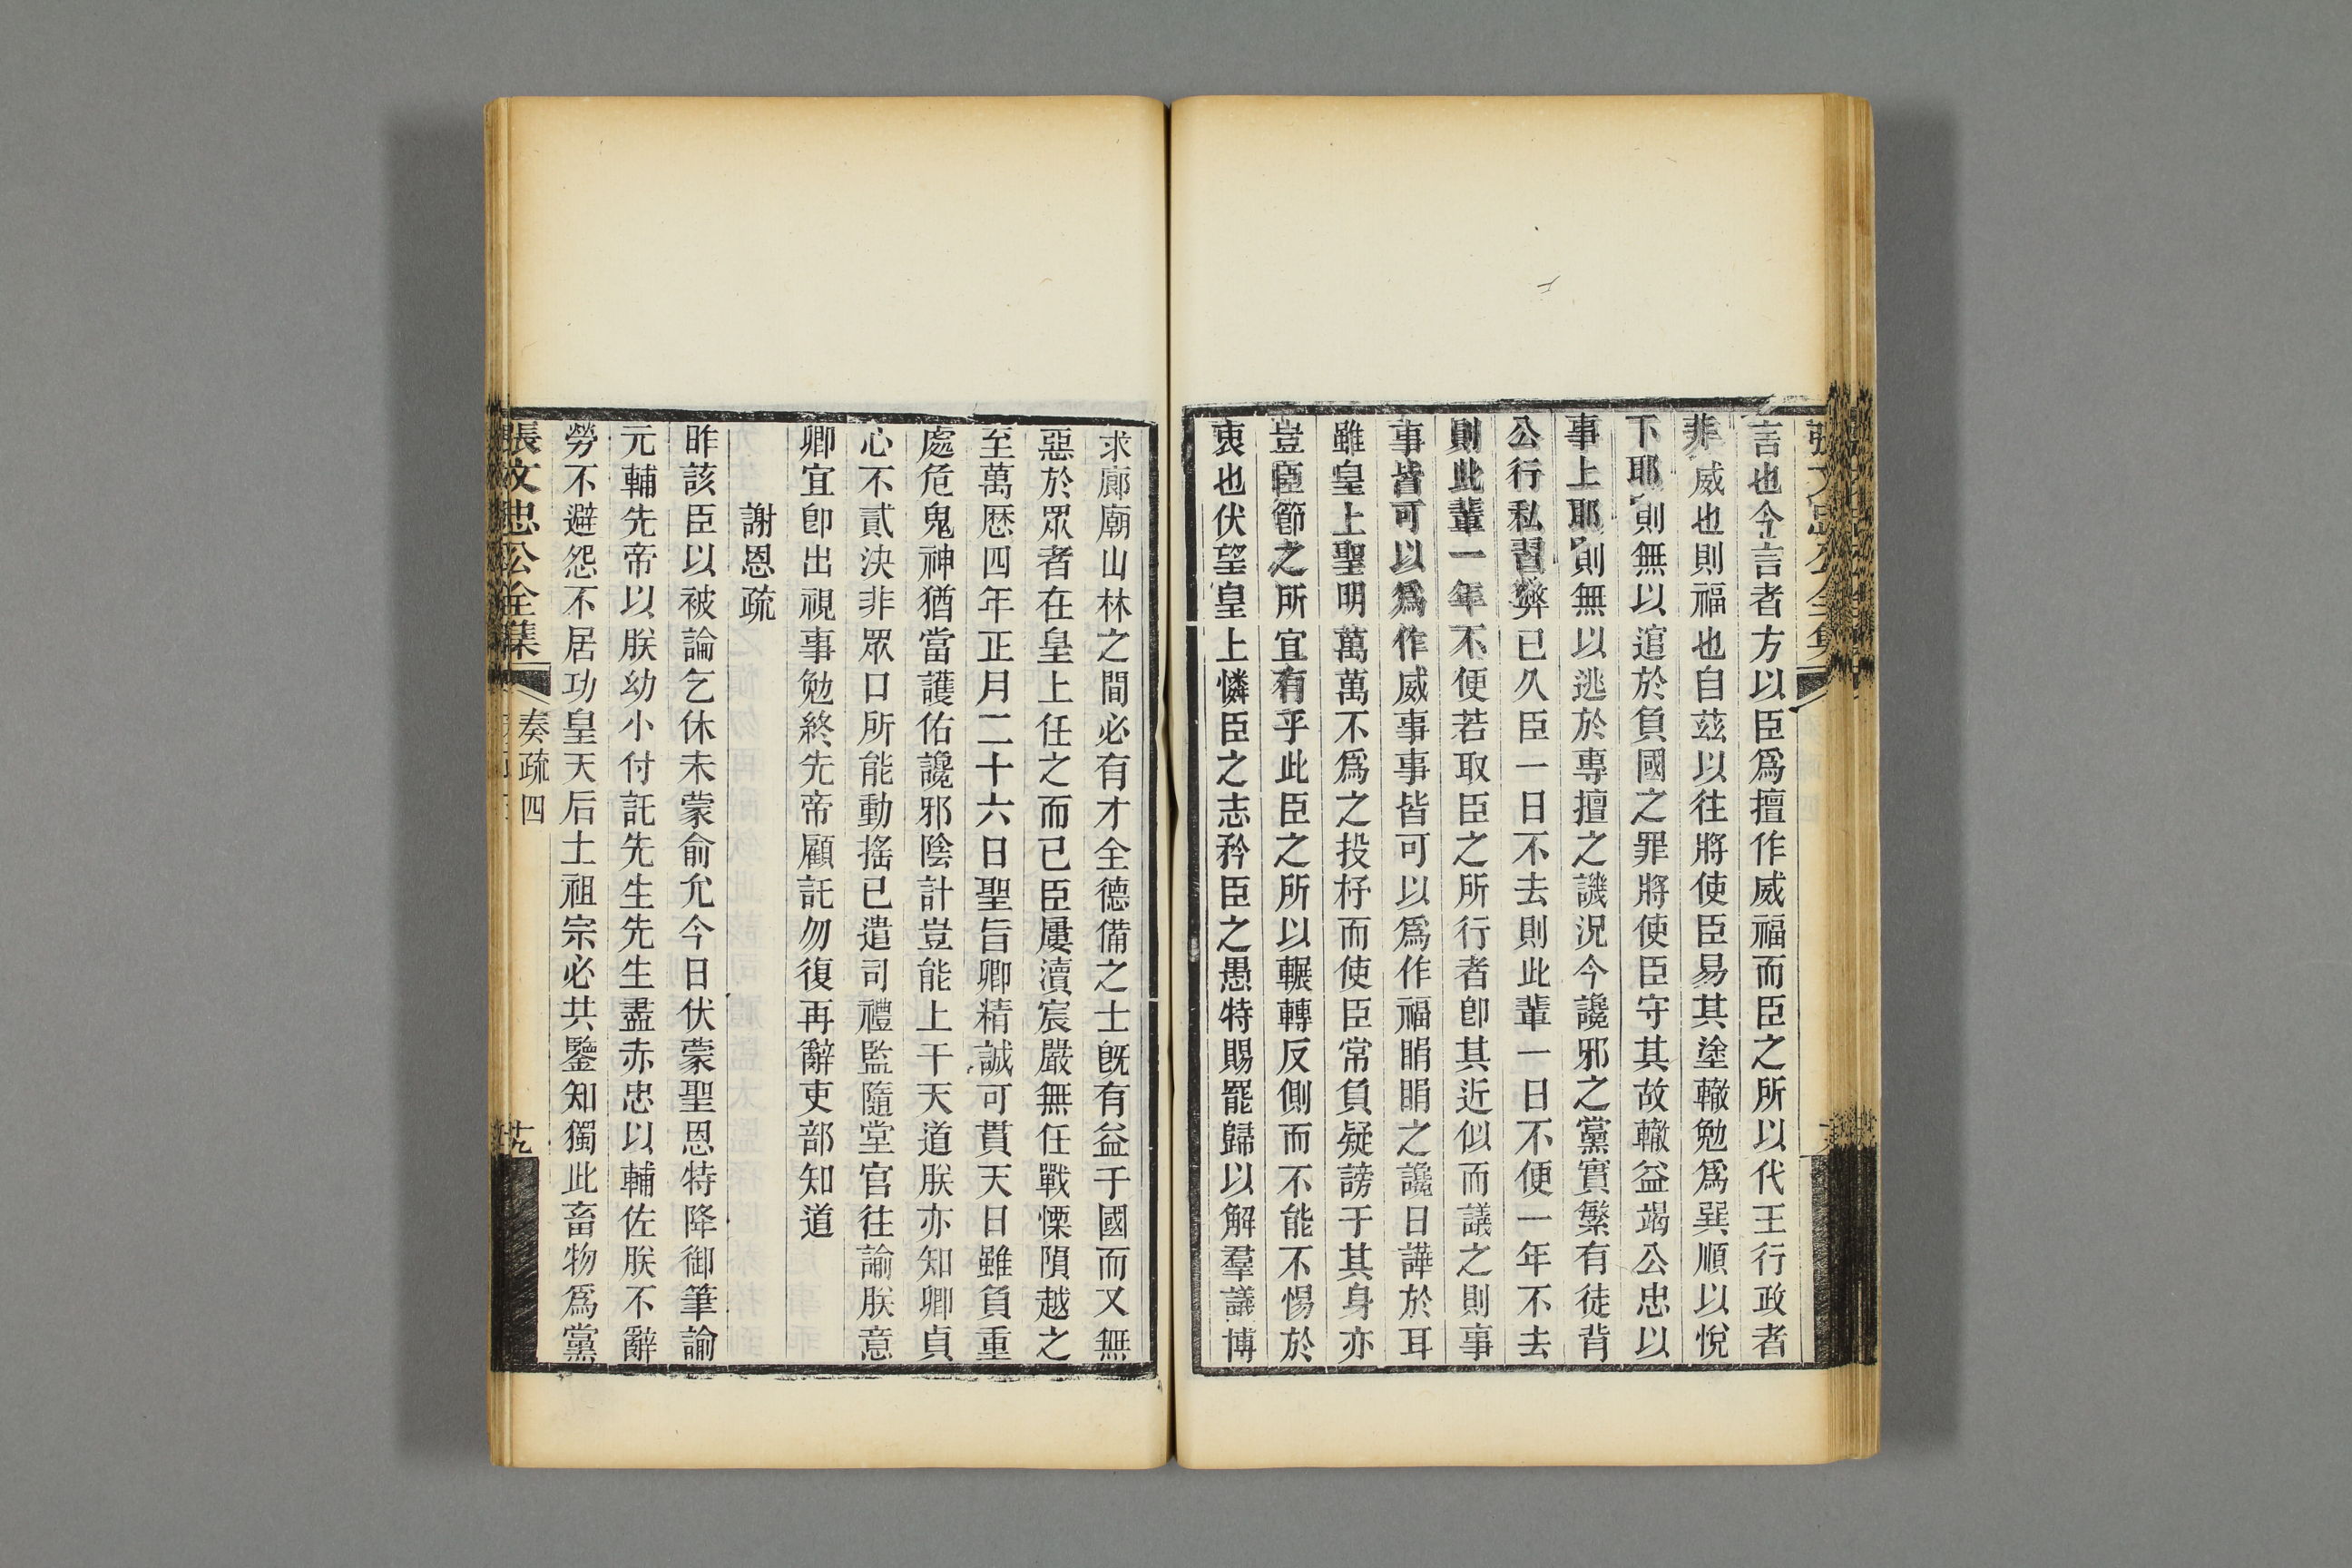 言也今言者方以臣爲擅作威福而臣之所以代王行政者
非威也則福也自茲以往將使臣易其塗轍勉爲巽順以悅
下耶則無以逭於負國之罪將使臣守其故轍益竭公忠以
事上耶則無以逃於專擅之譏況今讒邪之黨實繁有徒背
公行私習弊已久臣一日不去則此輩一日不便一年不去
則此輩一年不便若取臣之所行者卽其近似而議之則事
事皆可以爲作威事事皆可以爲作福睊睊之讒日譁於耳
雖皇上聖明萬萬不爲之投杼而使臣常負疑謗于其身亦
豈臣節之所宜有乎此臣之所以輾轉反側而不能不惕於
衷也伏望皇上憐臣之志矜臣之愚特賜罷歸以解羣議博
求廊廟山林之間必有才全德備之士旣有益于國而又無
惡於眾者在皇上任之而已臣屢瀆宸嚴無任戰慄隕越之
至萬歷四年正月二十六日聖旨卿精誠可貫天日雖負重
處危鬼神猶當護佑讒邪陰計豈能上干天道朕亦知卿貞
心不貳決非眾口所能動搖已遣司禮監隨堂官往諭朕意
卿宜卽出視事勉終先帝顧託勿復再辭吏部知道
謝恩疏
昨該臣以被論乞休未蒙俞允今日伏蒙聖恩特降御筆諭
元輔先帝以朕幼小付託先生先生盡赤忠以輔佐朕不辭
勞不避怨不居功皇天后土祖宗必共鑒知獨此畜物爲黨
張文忠公全集
奏疏四